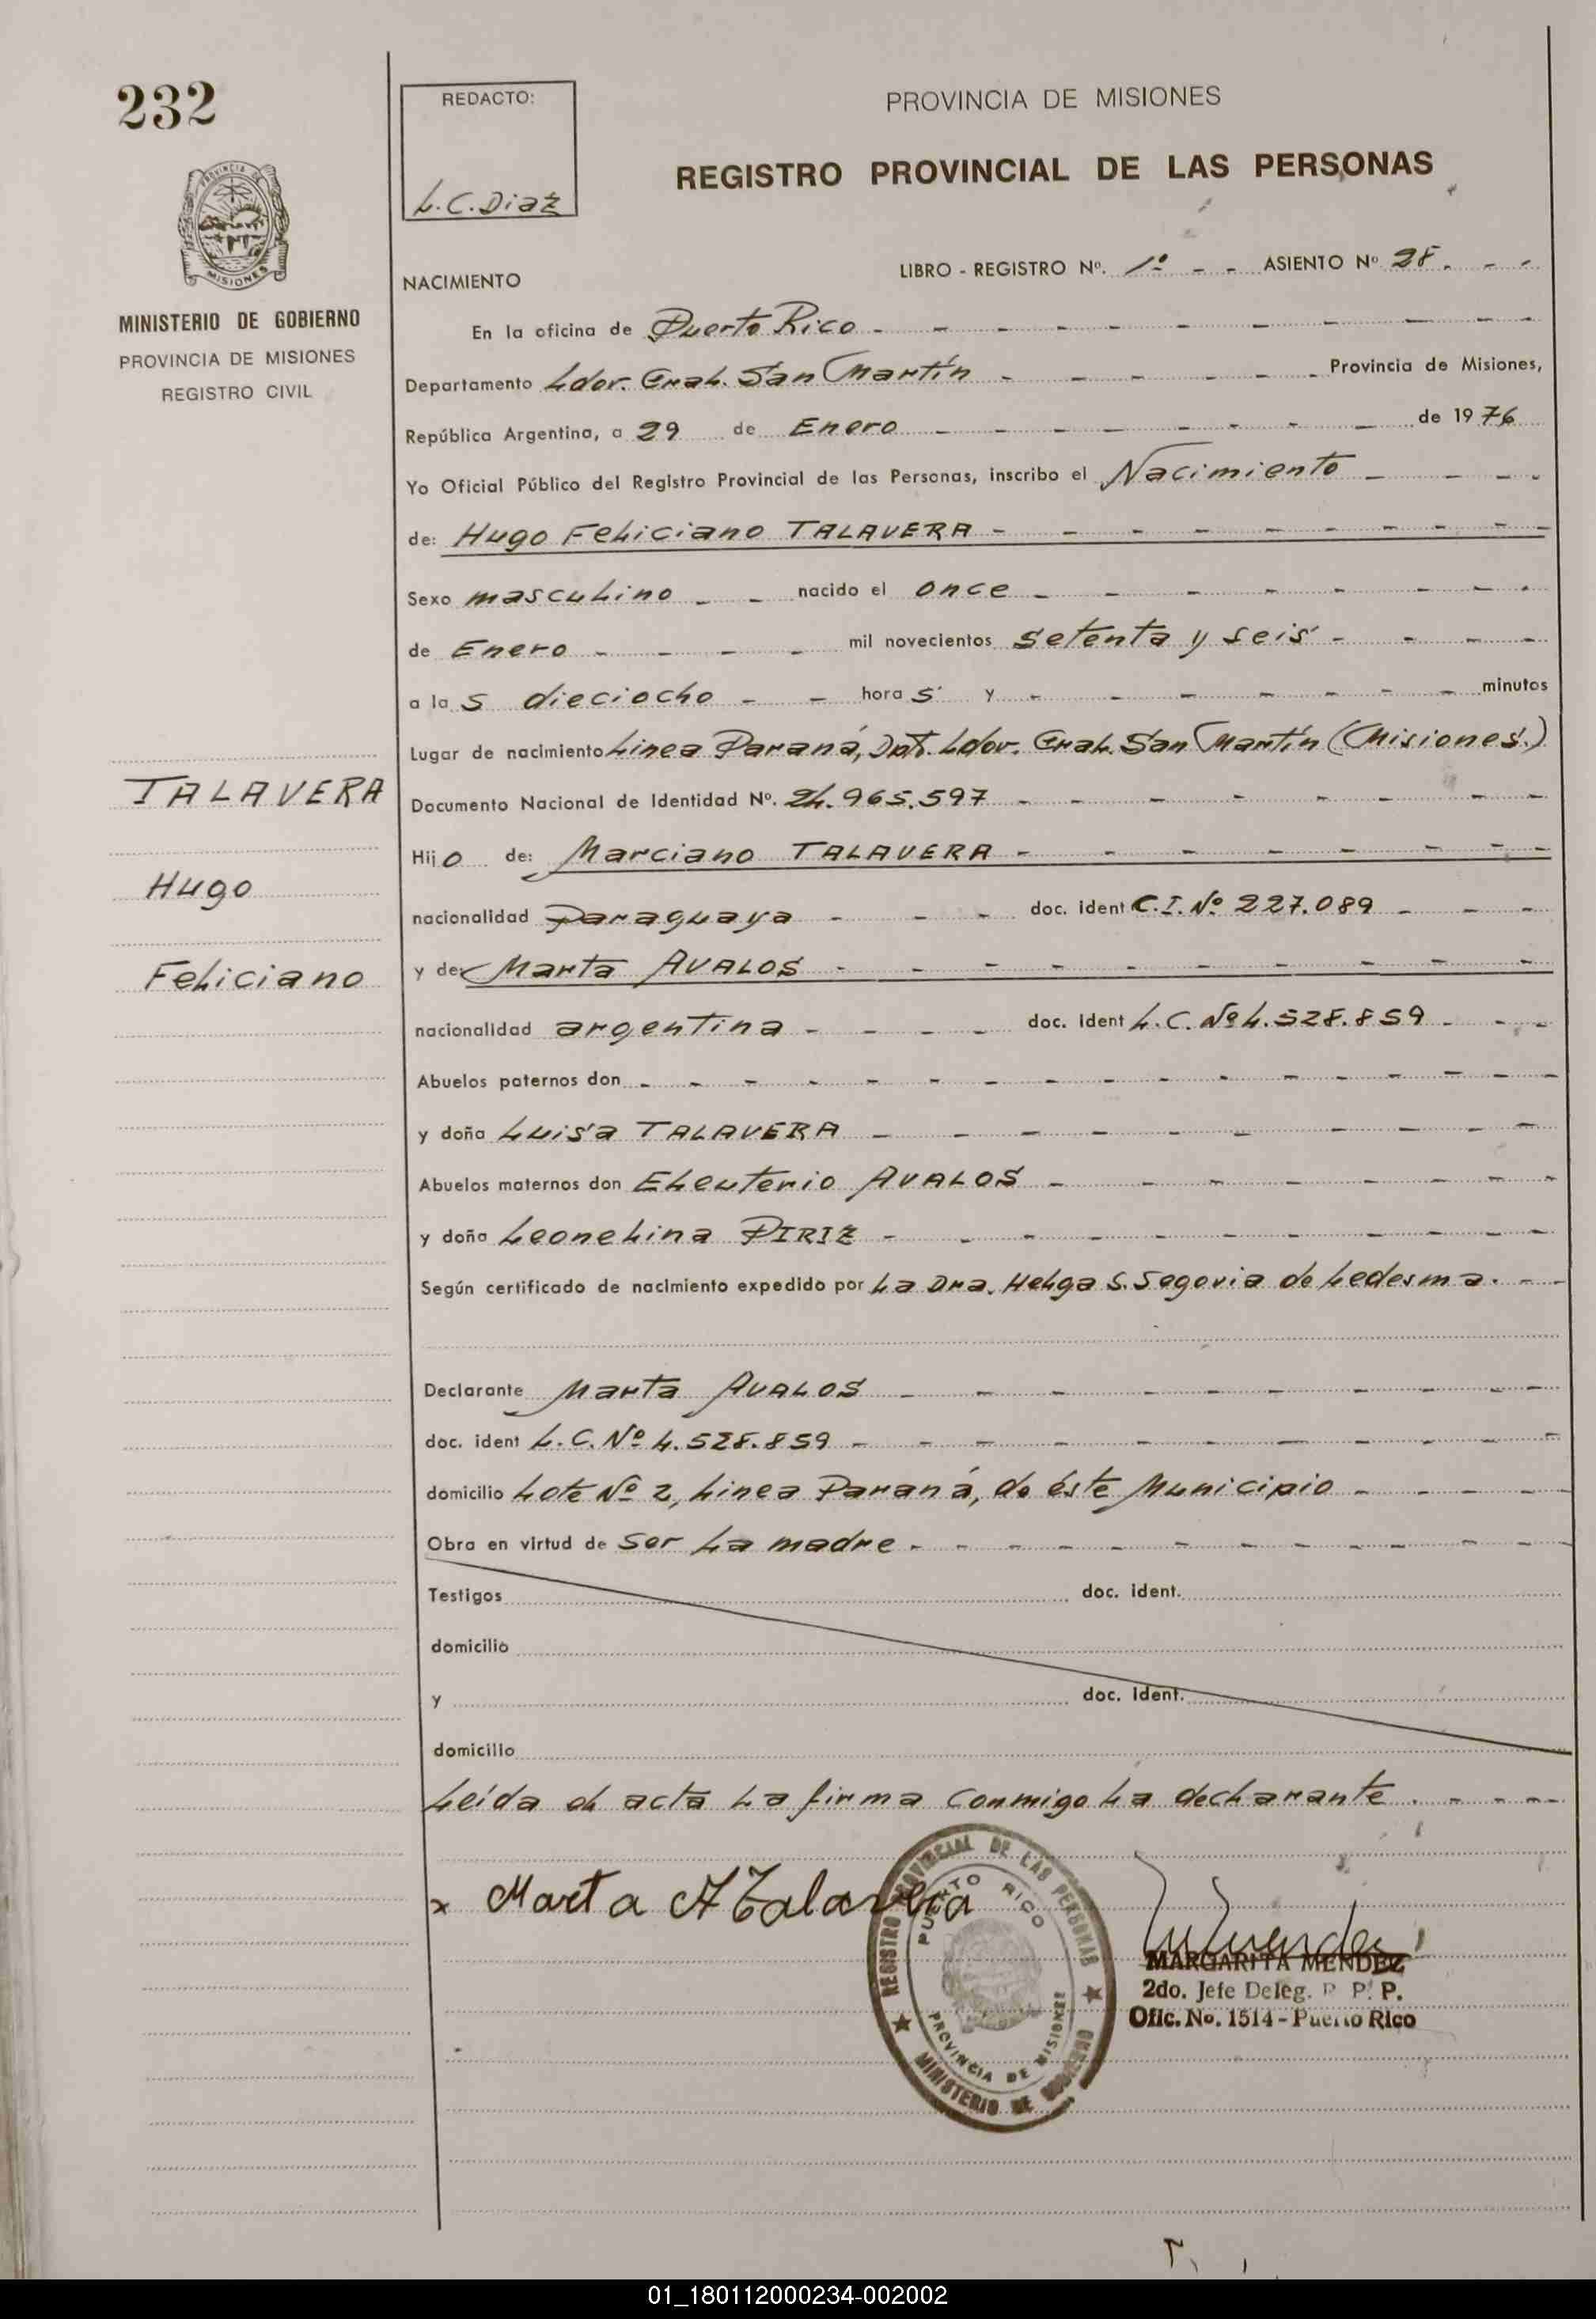 232
PROVINCIA DE
MISIONES
MINISTERIO DE GOBIERNO
PROVINCIA DE MISIONES
REGISTRO CIVIL
TALAVERA
Hugo
Feliciano
REDACTO:
L.C. Diaz
PROVINCIA DE MISIONES
REGISTRO PROVINCIAL DE LAS PERSONAS
NACIMIENTO
LIBRO - REGISTRO Nº. 1º - - ASIENTO Nº 28. - - -
En la oficina de Puerto Rico - - - - - - - - - -
Departamento Ldor. Gral. San Martín - - - - - Provincia de Misiones,
República Argentina, a 29 de Enero - - - - - - - - de 1976
Yo Oficial Público del Registro Provincial de las Personas, inscribo el Nacimiento - - - -
de: Hugo Feliciano TALAVERA - - - - - - - - -
Sexo masculino - - nacido el once - - - - - - - -
de Enero - - - - mil novecientos setenta y seis - - - -
a las dieciocho - - horas y - - - - - - - minutos
Lugar de nacimiento Linea Paraná, Dpt. Ldor. Gral. San Martín (Misiones.)
Documento Nacional de Identidad Nº. 24.965.597 - - - - - - - -
Hijo de: Marciano TALAVERA - - - - - - - -
nacionalidad Paraguaya - - - doc. ident C.I. Nº 227.089 - - -
y de: Marta AVALOS - - - - - - - - - -
nacionalidad argentina - - - - doc. ident L.C. Nº 4.528.859 - - -
Abuelos paternos don - - - - - - - - - - - - - - - -
y doña Luisa TALAVERA - - - - - - - - - -
Abuelos maternos don Eleuterio AVALOS - - - - - - - -
y doña Leonelina PIRIZ - - - - - - - - - - -
Según certificado de nacimiento expedido por La Dra. Helga S. Segovia de Ledesma. - -
Declarante Marta AVALOS - - - - - - - - - -
doc. ident L.C. Nº 4.528.859 - - - - - - - - - - -
domicilio Lote Nº 2, Linea Paraná, de éste Municipio - - - - -
Obra en virtud de ser La madre - - - - - - - - - - - -
Testigos doc. ident.
domicilio
y doc. ident.
domicilio
Leída el acta La firma conmigo La declarante . - - - -
x Marta A Talavera
REGISTRO PROVINCIAL DE LAS PERSONAS
PUERTO RICO
PROVINCIA DE MISIONES
MINISTERIO DE GOBIERNO
MARGARITA MENDEZ
2do. Jefe Deleg. P. P.
Ofic. No. 1514 - Puerto Rico
01_180112000234-002002